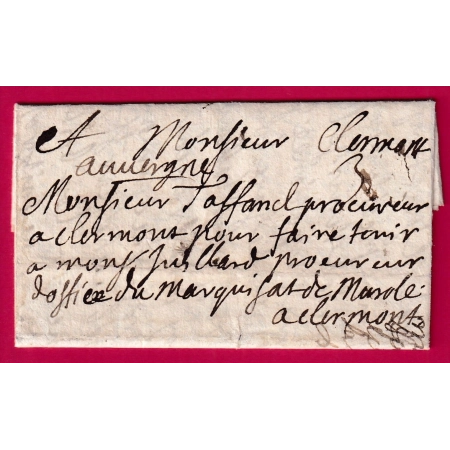 A Monsieur Clermont
auvergne
Monsieur Taffanel procureur
a clermont pour faire tenir
a mons Juillard procureur
doffice du Marquisat de Marole
a clermont